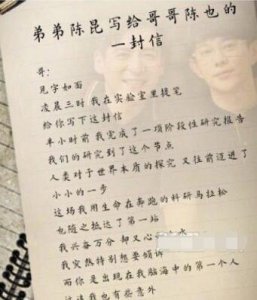 弟弟陈昆写给哥哥陈也的
一封信
哥：
见字如面
凌晨三时 我在实验室里提笔
给你写下这封信
半小时前 我完成了一项阶段性研究报告
我们的研究到了这个节点
人类对于世界本质的探究 又往前迈进了
小小的一步
这场我用生命在奔跑的科研马拉松
也随之抵达了第一站
我兴奋万分 却又心
我突然特别想要倾诉
而你是出现在我脑海中的第一个人
我也有些意外